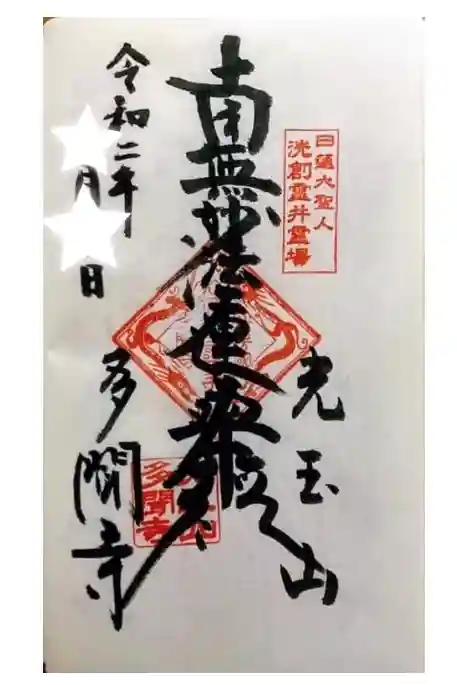 日蓮大聖人
洗創霊井霊場
光玉山
南無妙法蓮華経
多聞寺
多聞寺
令和二年
月
日